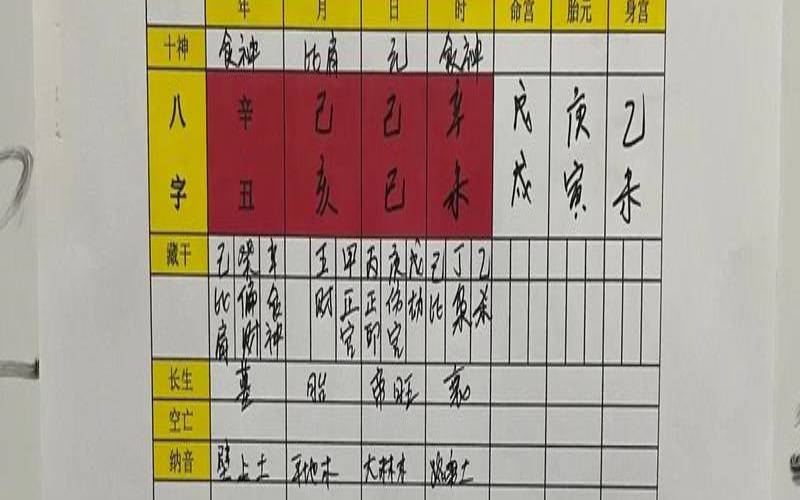 年 月 日 时 命宫 胎元 身宫
十神 食神 比肩 元 食神
八字
辛 己 己 辛 戊 庚 乙
丑 亥 巳 未 戌 寅 未
藏干 己 癸 辛 壬 甲 丙 庚 戊 己 丁 乙
比肩 偏财 食神 财 正官 正印 伤官 劫 比 枭 杀
长生 墓 胎 帝旺
空亡
纳音 壁上土 平地木 大林木 路旁土